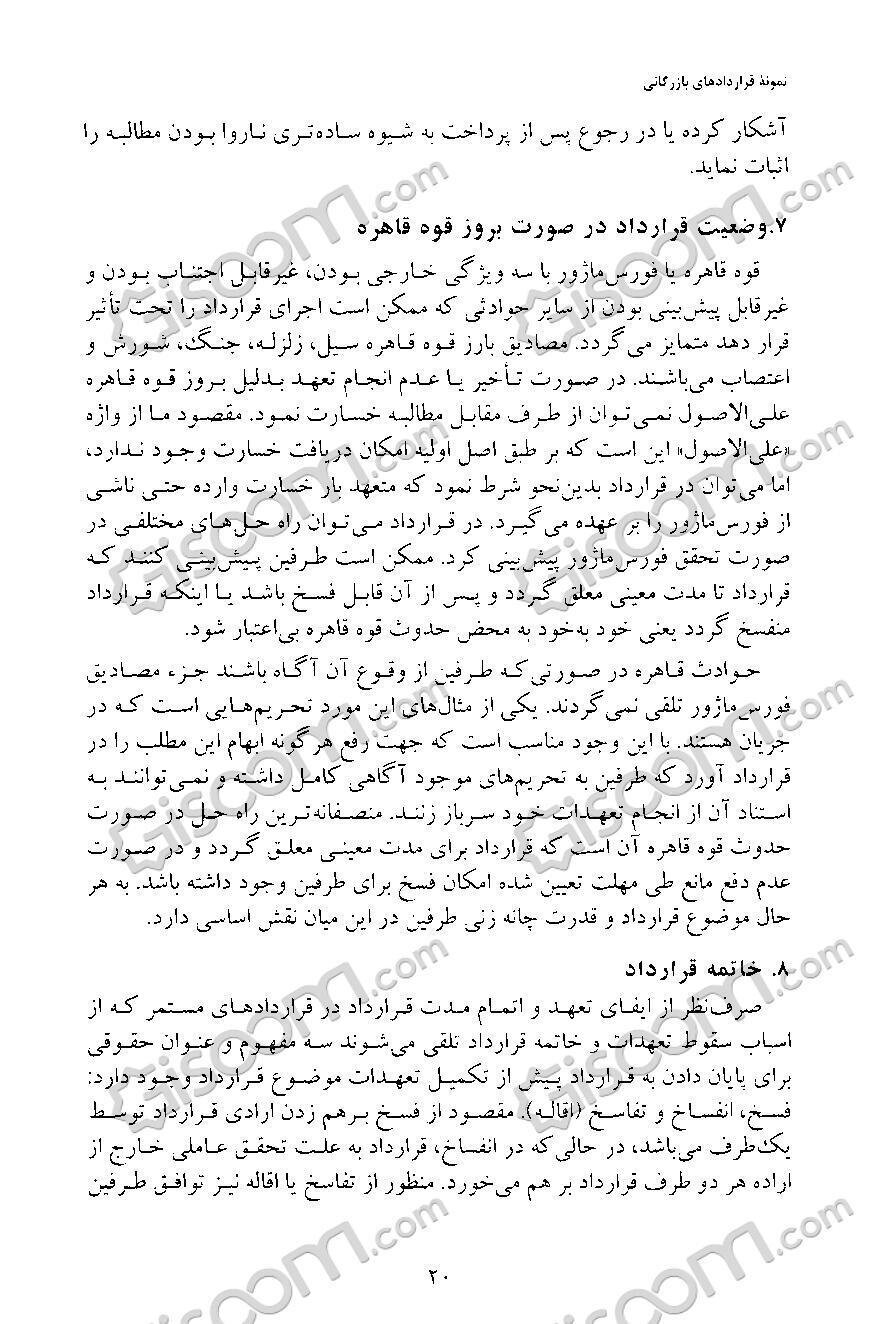 نمونهٔ قراردادهای بازرگانی
آشکار کرده یا در رجوع پس از پرداخت به شیوه ساده‌تری ناروا بودن مطالبه را
اثبات نماید.
۷.وضعیت قرارداد در صورت بروز قوه قاهره
قوه قاهره یا فورس‌ماژور با سه ویژگی خارجی بودن، غیرقابل اجتناب بودن و
غیرقابل پیش‌بینی بودن از سایر حوادثی که ممکن است اجرای قرارداد را تحت تأثیر
قرار دهد متمایز می‌گردد. مصادیق بارز قوه قاهره سیل، زلزله، جنگ، شورش و
اعتصاب می‌باشند. در صورت تأخیر یا عدم انجام تعهد بدلیل بروز قوه قاهره
علی‌الاصول نمی‌توان از طرف مقابل مطالبه خسارت نمود. مقصود ما از واژه
«علی‌الاصول» این است که بر طبق اصل اولیه امکان دریافت خسارت وجود ندارد،
اما می‌توان در قرارداد بدین‌نحو شرط نمود که متعهد بار خسارت وارده حتی ناشی
از فورس‌ماژور را بر عهده می‌گیرد. در قرارداد می‌توان راه حل‌های مختلفی در
صورت تحقق فورس‌ماژور پیش‌بینی کرد. ممکن است طرفین پیش‌بینی کنند که
قرارداد تا مدت معینی معلق گردد و پس از آن قابل فسخ باشد یا اینکه قرارداد
منفسخ گردد یعنی خود به‌خود به محض حدوث قوه قاهره بی‌اعتبار شود.
حوادث قاهره در صورتی‌که طرفین از وقوع آن آگاه باشند جزء مصادیق
فورس‌ماژور تلقی نمی‌گردند. یکی از مثال‌های این مورد تحریم‌هایی است که در
جریان هستند. با این وجود مناسب است که جهت رفع هرگونه ابهام این مطلب را در
قرارداد آورد که طرفین به تحریم‌های موجود آگاهی کامل داشته و نمی‌توانند به
استناد آن از انجام تعهدات خود سرباز زنند. منصفانه‌ترین راه حل در صورت
حدوث قوه قاهره آن است که قرارداد برای مدت معینی معلق گردد و در صورت
عدم دفع مانع طی مهلت تعیین شده امکان فسخ برای طرفین وجود داشته باشد. به هر
حال موضوع قرارداد و قدرت چانه زنی طرفین در این میان نقش اساسی دارد.
۸. خاتمه قرارداد
صرف‌نظر از ایفای تعهد و اتمام مدت قرارداد در قراردادهای مستمر که از
اسباب سقوط تعهدات و خاتمه قرارداد تلقی می‌شوند سه مفهوم و عنوان حقوقی
برای پایان دادن به قرارداد پیش از تکمیل تعهدات موضوع قرارداد وجود دارد:
فسخ، انفساخ و تفاسخ (اقاله). مقصود از فسخ برهم زدن ارادی قرارداد توسط
یک‌طرف می‌باشد، در حالی‌که در انفساخ، قرارداد به علت تحقق عاملی خارج از
اراده هر دو طرف قرارداد بر هم می‌خورد. منظور از تفاسخ یا اقاله نیز توافق طرفین
۲۰